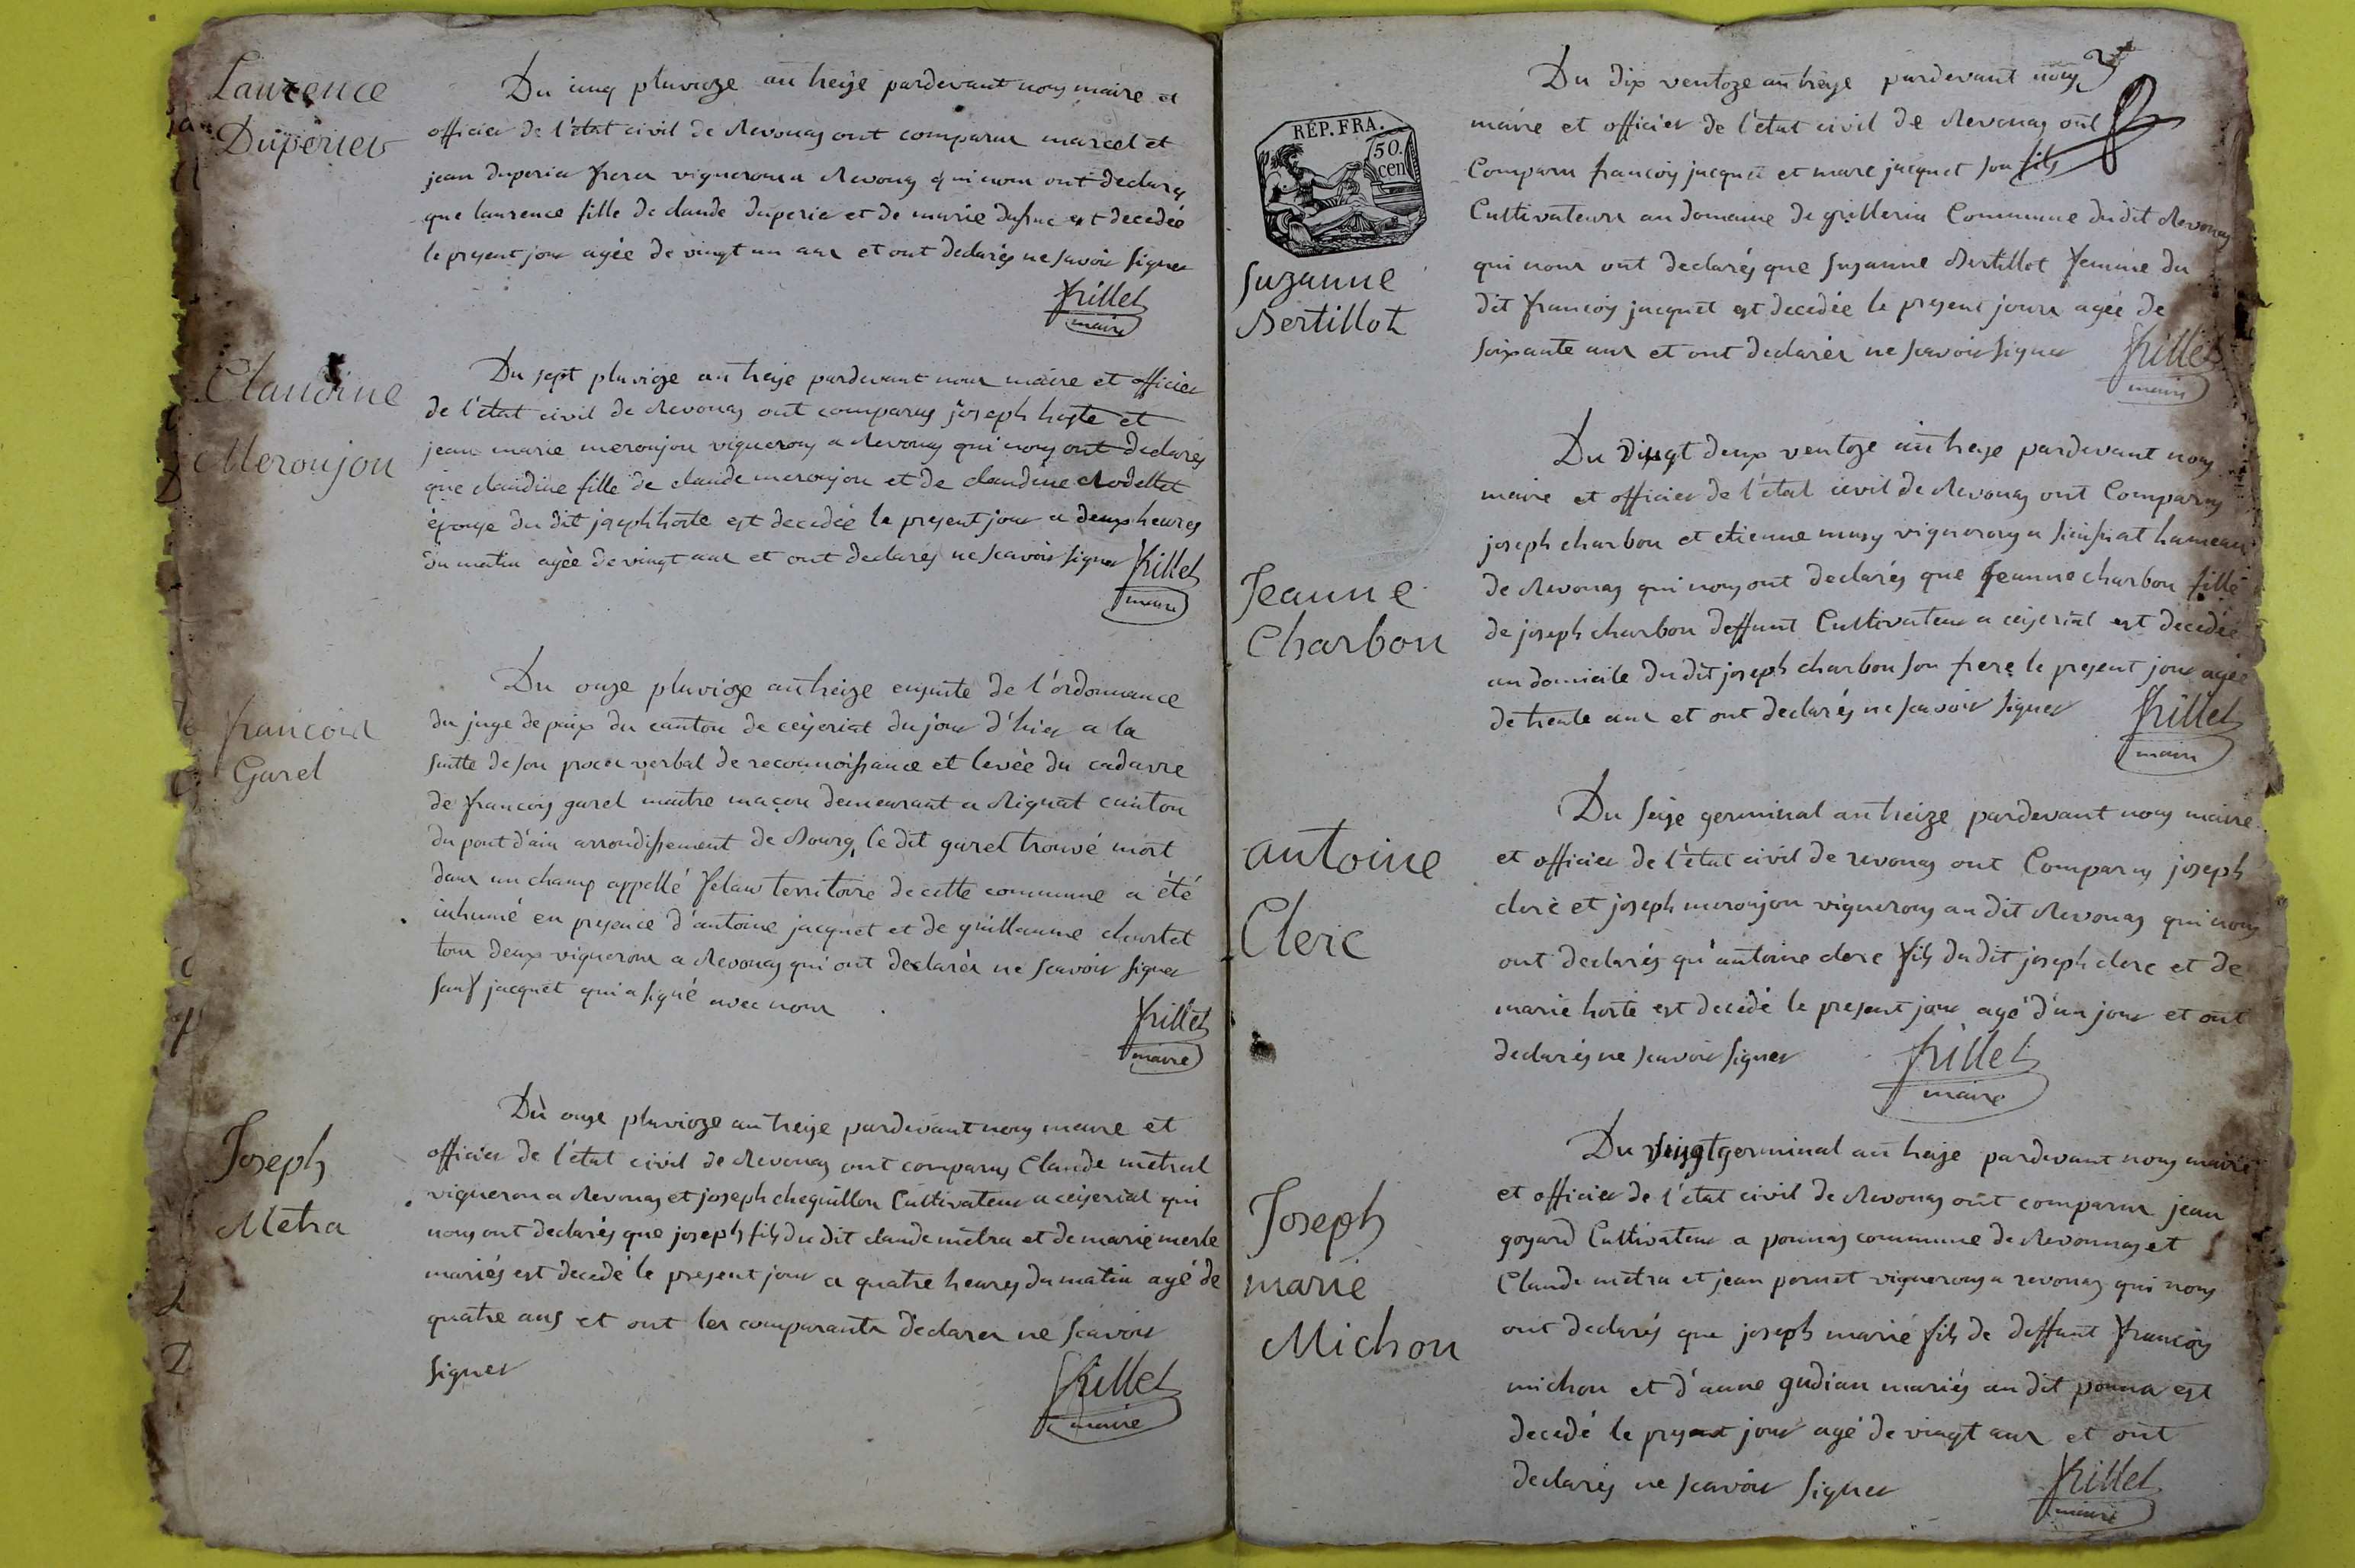 Laurence
Duperier
Du cinq pluvioze an treize pardevant nous maire et
officier de l'état civil de Revonas ont comparu marcel et
jean duperier freres vignerons a Revonas qui nous ont declarés
que laurence fille de claude duperier et de marie est decedée
le present jour agée de vingt un ans et ont declarés ne savoir signer
frillet
maire
Claudine
Meroujou
Du sept pluvioze an treize pardevant nous maire et officier
de l'état civil de Revonas ont comparus joseph hoste et
jean marie meroujou vignerons a Revonas qui nous ont declarés
que claudine fille de claude meroujou et de claudine Rodellet
épouse du dit joseph hoste est decedée le present jour a deux heures
du matin agée de vingt ans et ont declarés ne scavoir signer
frillet
maire
francois
Garel
Du onze pluvioze an treize ensuite de l'ordonnance
du juge de paix du canton de ceizeriat du jour d'hier a la
suitte de son proces verbal de reconnoissance et levée du cadavre
de francois garel maitre maçon demeurant a Rignat canton
du pont d'ain arrondissement de Bourg, le dit garel trouvé mort
dans un champ appellé territoire de cette commune a été
inhumé en presence d'antoine jacquet et de guillaume
tous deux vignerons a Revonas qui ont declarés ne scavoir signer
sauf jacquet qui a signé avec nous
frillet
maire
Joseph
Metra
Du onze pluvioze an treize pardevant nous maire et
officier de l'état civil de Revonas ont comparus Claude metral
vigneron a Revonas et joseph cheguillon Cultivateur a ceizeriat qui
nous ont declarés que joseph fils du dit claude metra et de marie merle
mariés est decedé le present jour a quatre heures du matin agé de
quatre ans et ont les comparants declarer ne scavoir
signer
frillet
maire
RÉP. FRA.
50.
cen
Suzanne
Bertillot
Du dix ventoze an treize pardevant nous
maire et officier de l'état civil de Revonas ont
Comparu francois jacquet et marc jacquet son fils
Cultivateurs au domaine de grilleria Commune du dit Revonas
qui nous ont declarés que suzanne Bertillot femme du
dit francois jacquet est decedée le present jour agée de
soixante ans et ont declarés ne scavoir signer
frillet
maire
Jeanne
Charbon
Du Vingt deux ventoze an treze pardevant nous
maire et officier de l'état civil de Revonas ont Comparus
joseph charbon et etienne musy vignerons a hameau
de Revonas qui nous ont declarés que Jeanne charbon fille
de joseph charbon deffunt Cultivateur a ceizeriat est decedée
au domicile du dit joseph charbon son frere le present jour agée
de trente ans et ont declarés ne scavoir signer
frillet
maire
antoine
Clerc
Du seize germinal an treize pardevant nous maire
et officier de l'état civil de revonas ont Comparus joseph
clerc et joseph meroujou vignerons au dit Revonas qui nous
ont declarés qu'antoine clerc fils du dit joseph clerc et de
marie hoste est decedé le present jour agé d'un jour et ont
declarés ne scavoir signer
frillet
maire
Joseph
marie
Michon
Du vingt germinal an treize pardevant nous maire
et officier de l'état civil de Revonas ont comparus jean
goyard Cultivateur a pommas commune de Revonnas et
Claude metra et jean pornet vignerons a revonas qui nous
ont declarés que joseph marie fils de deffunt francois
michon et d'anne gudian mariés au dit est
decedé le present jour agé de vingt ans et ont
declarés ne scavoir signer
frillet
maire